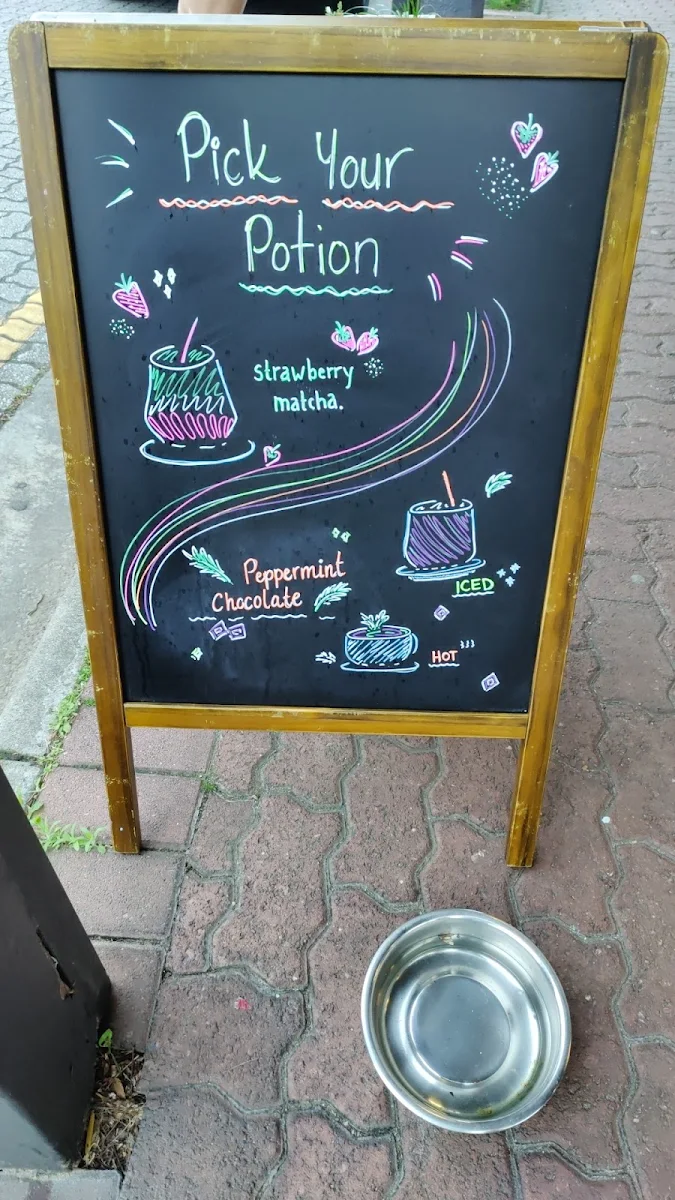 Pick Your
Potion
strawberry
matcha.
ICED
Peppermint
Chocolate
HOT